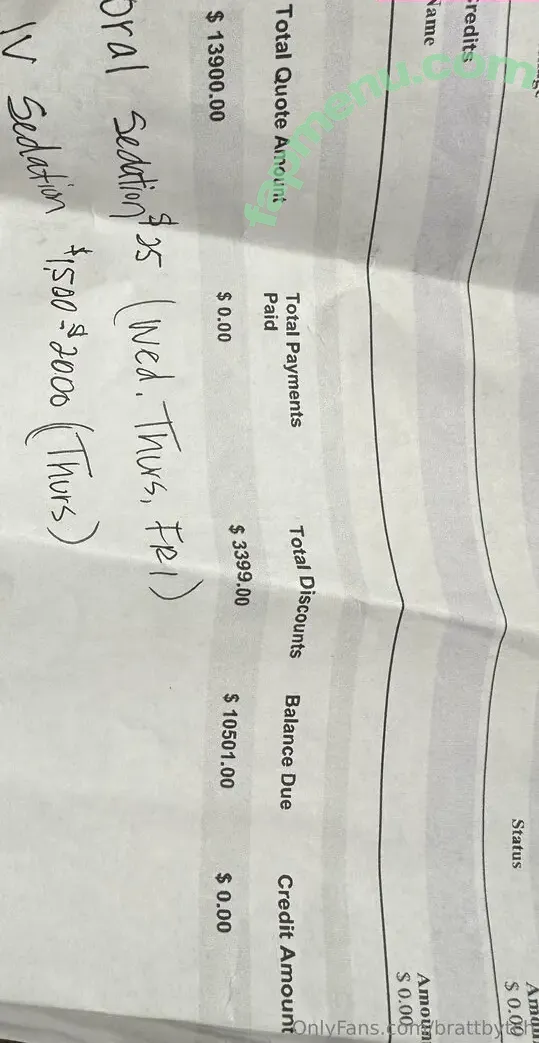 Status
$ 0.00
redits
Name Amoun
$ 0.00
Total Quote Amount Total Payments Total Discounts Balance Due Credit Amount
Paid
$ 13900.00 $ 0.00 $ 3399.00 $ 10501.00 $ 0.00
oral Sedation $25 (Wed, Thurs, FRI)
IV Sedation $1,500-$2000 (Thurs)
fapmenu.com